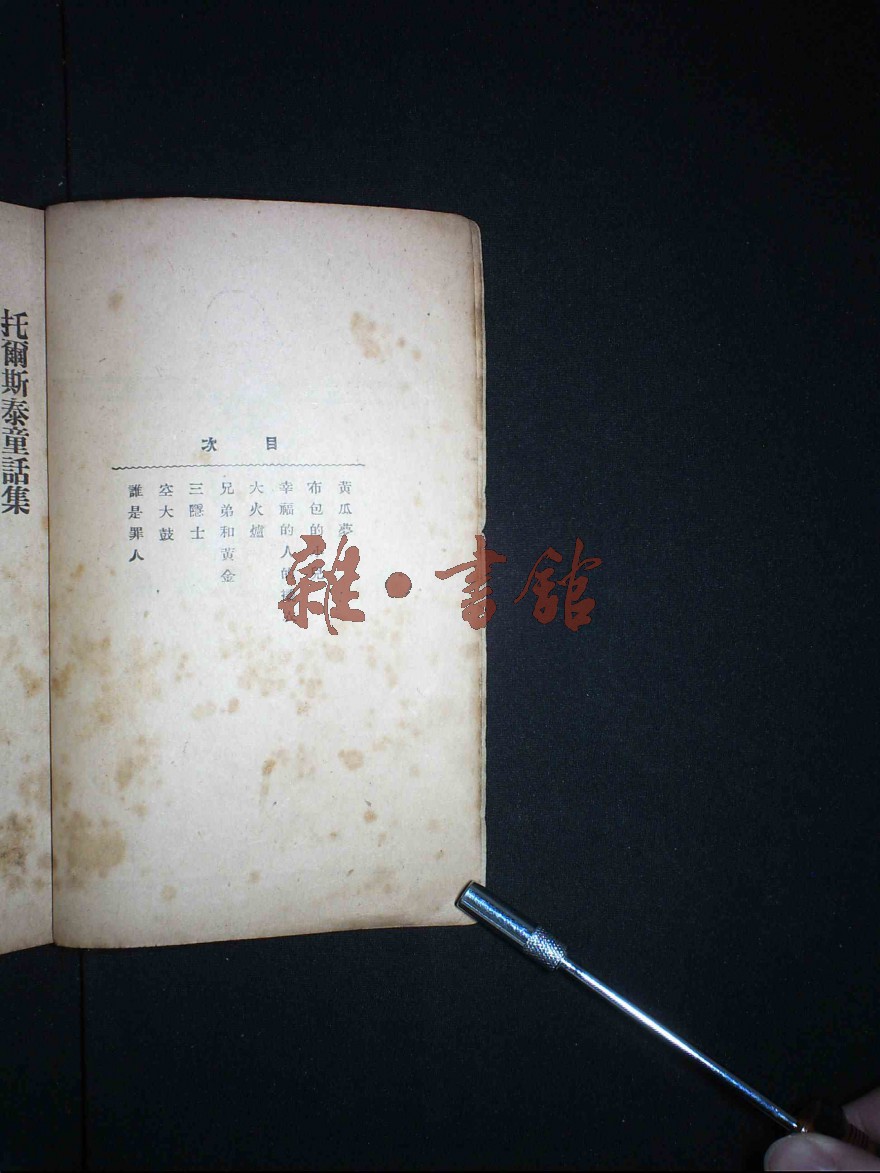 目次
黃瓜夢
布包的
幸福的人的
大火爐
兄弟和黃金
三隱士
空大鼓
誰是罪人
托爾斯泰童話集
雜·書館